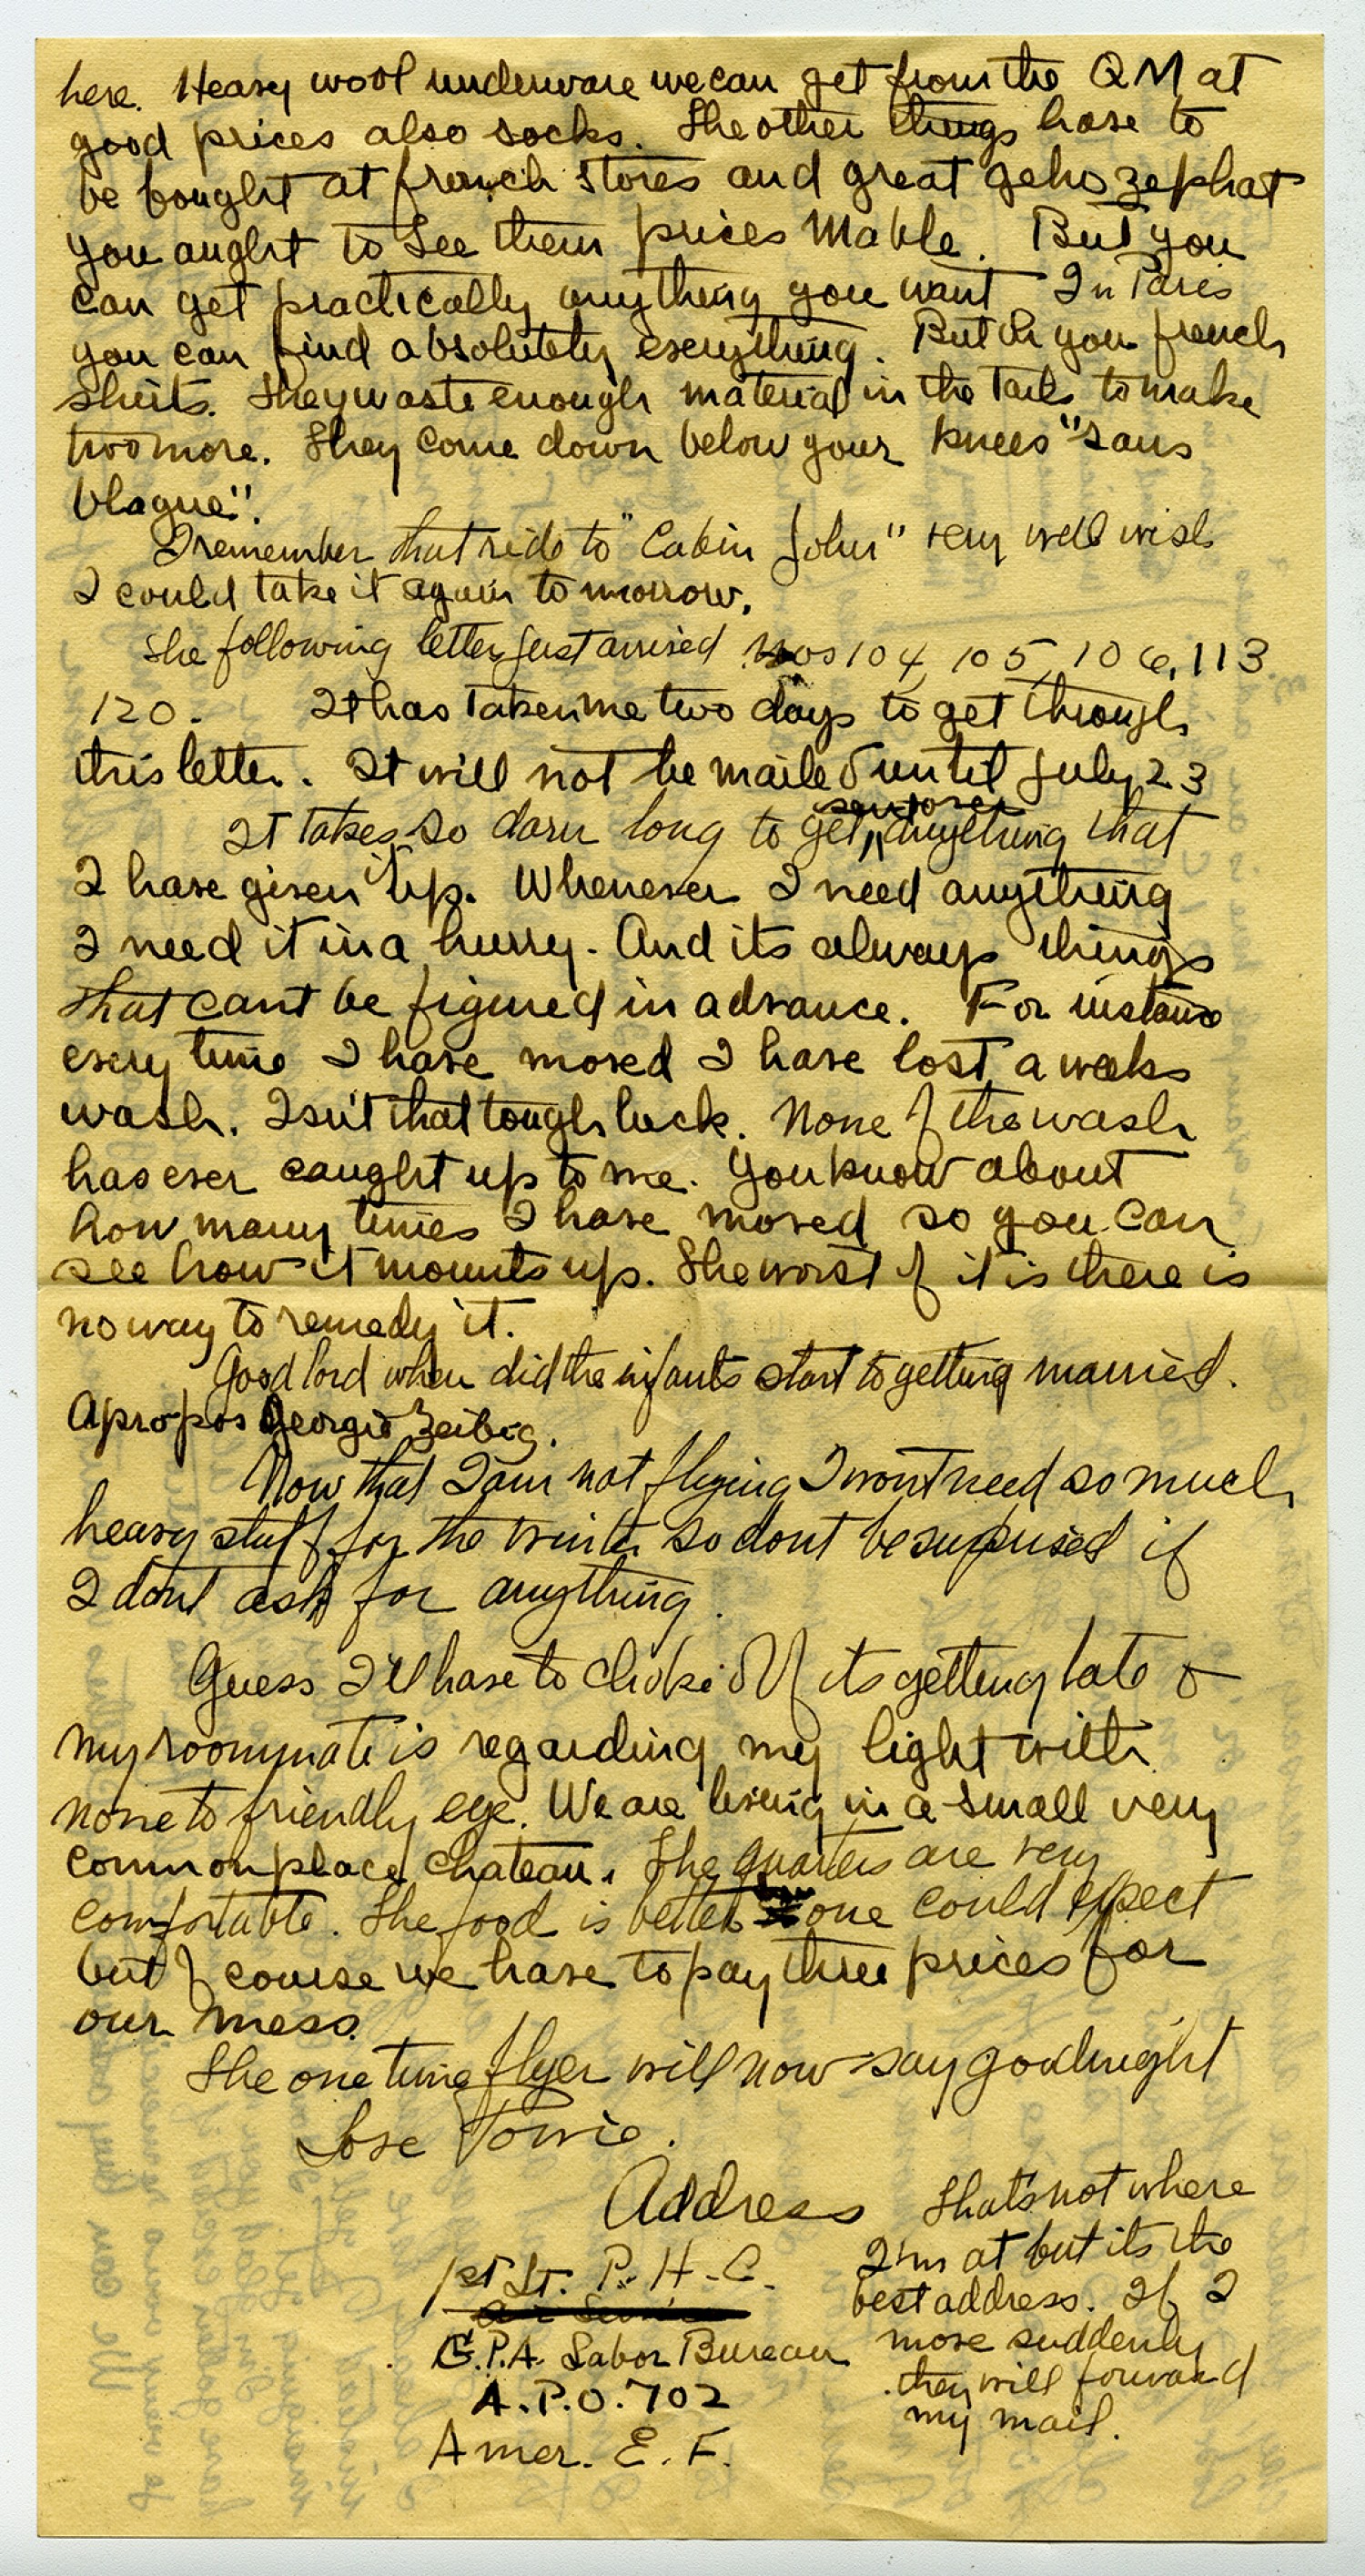 here. Heavy wool underware we can get from the Q M at
good prices also socks. The other things have to
be bought at french stores and great gehozephat
you aught to see them prices Mable. But you
can get practically anything you want In Paris
you can find absolutely everything. But Oh you french
shirts. They waste enough material in the tails to make
two more. They come down below your knees "sans
blague".
I remember that ride to "Cabin John" very well wish
I could take it again tomorrow.
The following letters just arrived nos 104, 105, 106, 113
120. It has taken me two days to get through
this letter. It will not be mailed until July 23
It takes so darn long to get anything that
I have given it up. Whenever I need anything
I need it in a hurry. And its always things
that cant be figured in advance. For instance
every time I have moved I have lost a weeks
wash. Isn't that tough luck. None of the wash
has ever caught up to me. You know about
how many times I have moved so you can
see how it mounts up. The worst of it is there is
no way to remedy it.
Good lord when did the infants start to getting married.
Apropos Georgie Zeibig.
Now that I am not flying I wont need so much
heavy stuff for the winter so dont be surprised if
I dont ask for anything.
Guess I'll have to choke off its getting late &
my roommate is regarding my light with
none to friendly eye. We are living in a small very
commonplace chateau. The quarters are very
comfortable. The food is better one could expect
but of course we have to pay three prices for
our mess.
The one time flyer will now say goodnight
Love Towie.
Address
1st Lt. P. H. C.
Air Service
G.P.A. Labor Bureau
A.P.O. 702
Amer. E. F.
That's not where
I'm at but its the
best address. If I
move suddenly
they will forward
my mail.